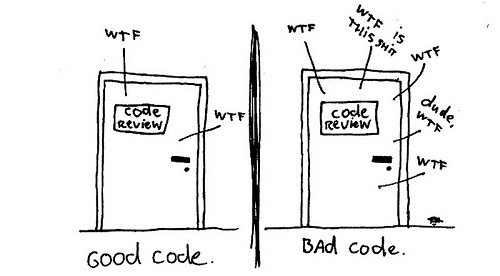 WTF
code
REVIEW
WTF
GOOD code.
WTF
WTF is
THiS SHiT
WTF
code
REVIEW
dude,
WTF
WTF
BAd code.